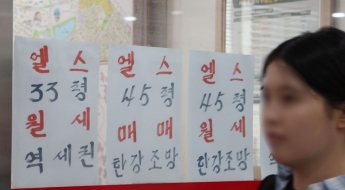 엘스
33평
월세
역세권
엘스
45평
매매
한강조망
엘스
45평
월세
한강조망